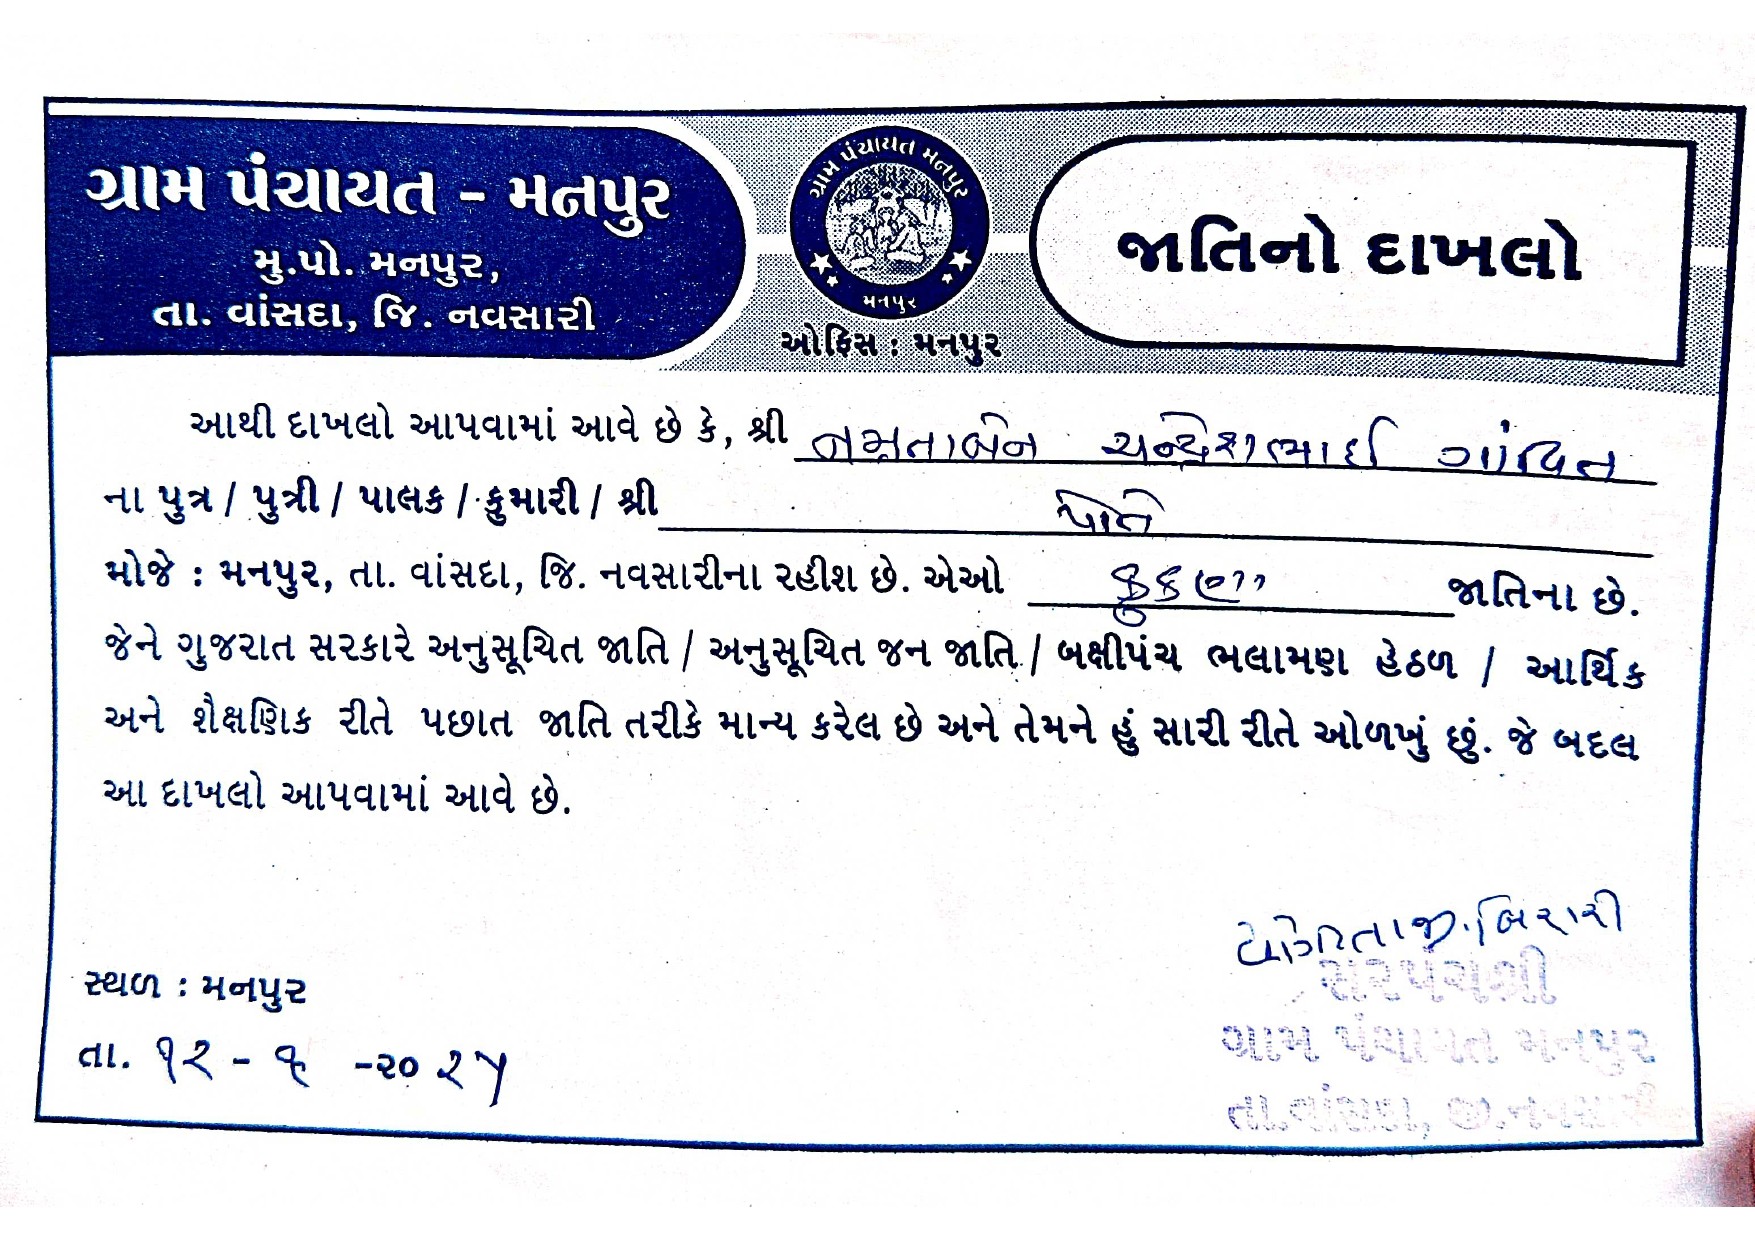 ગ્રામ પંચાયત - મનપુર
મુ.પો. મનપુર,
તા. વાંસદા, જિ. નવસારી
ગ્રામ પંચાયત મનપુર
મનપુર
ઓફિસ : મનપુર
જાતિનો દાખલો
આથી દાખલો આપવામાં આવે છે કે, શ્રી નમ્રતાબેન ચન્દ્રેશભાઈ ગાંવિત
ના પુત્ર / પુત્રી / પાલક / કુમારી / શ્રી પોતે
મોજે : મનપુર, તા. વાંસદા, જિ. નવસારીના રહીશ છે. એઓ કુકણા જાતિના છે.
જેને ગુજરાત સરકારે અનુસૂચિત જાતિ / અનુસૂચિત જન જાતિ / બક્ષીપંચ ભલામણ હેઠળ / આર્થિક
અને શૈક્ષણિક રીતે પછાત જાતિ તરીકે માન્ય કરેલ છે અને તેમને હું સારી રીતે ઓળખું છું. જે બદલ
આ દાખલો આપવામાં આવે છે.
યોગિતા જી. બિરારી
સરપંચશ્રી
ગ્રામ પંચાયત મનપુર
તા.વાંસદા, જી.નવસારી
સ્થળ : મનપુર
તા. ૧૨ - ૬ -૨૦૨૫